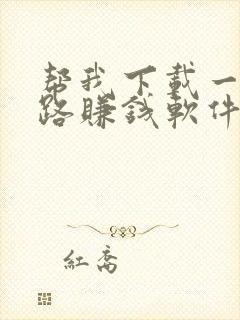 帮我下载一
路赚钱軟件
红喬